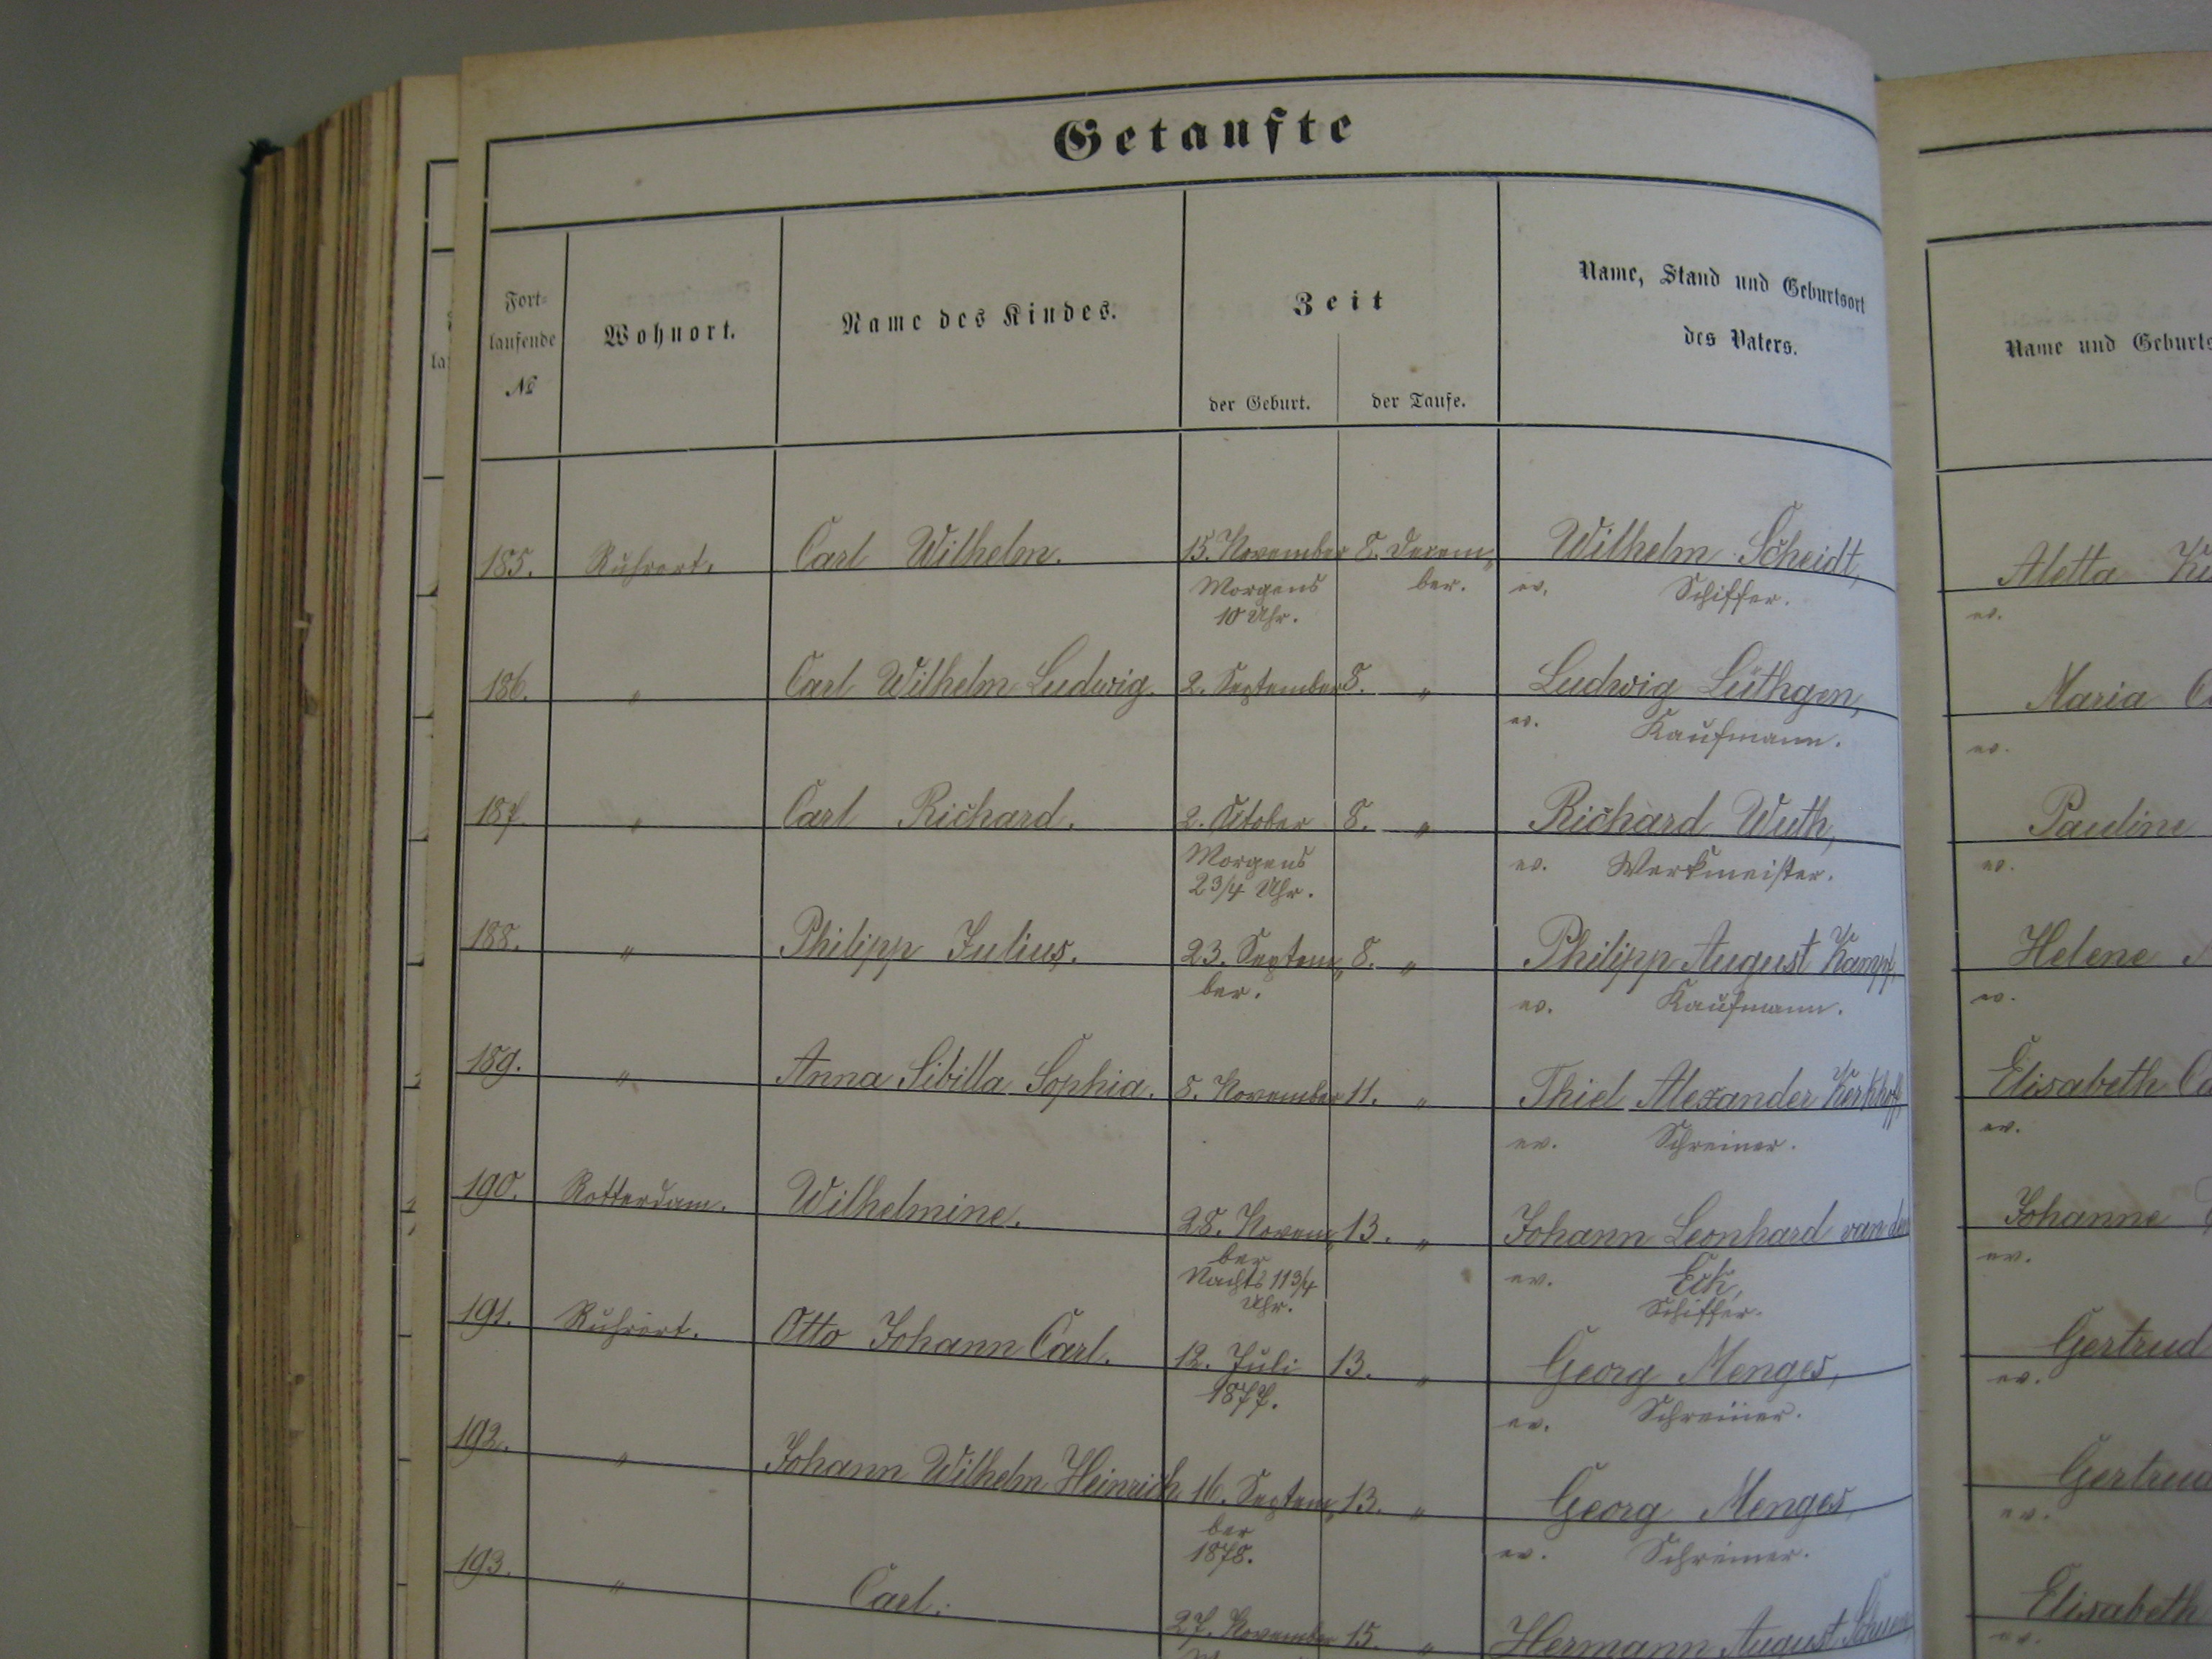 Getaufte
Fort-
laufende
№
Wohnort.
Name des Kindes.
Zeit
der Geburt.
der Taufe.
Name, Stand und Geburtsort
des Vaters.
Name und Geburts
185. Ruhrort. Carl Wilhelm. 15. November 8. Decem„ Wilhelm Scheidt, Aletta
Morgens ber. ev. Schiffer. ev.
10 Uhr.
186. „ Carl Wilhelm Ludwig. 2. September 8. „ Ludwig Lüthgen, Maria
ev. Kaufmann. ev.
187. „ Carl Richard. 2. October 8. „ Richard Wuth, Pauline
Morgens ev. Werkmeister. ev.
2 3/4 Uhr.
188. „ Philipp Julius. 23. Septem„ 8. „ Philipp August Kampf, Helene
ber. ev. Kaufmann. ev.
189. „ Anna Sibilla Sophia. 8. November 11. „ Thiel Alexander Kerkhoff, Elisabeth
ev. Schreiner. ev.
190. Rotterdam. Wilhelmine. 28. Novem„ 13. „ Johann Leonhard van der Johanne
ber ev. Eck, ev.
Nachts 11 3/4 Schiffer.
Uhr.
191. Ruhrort. Otto Johann Carl. 12. Juli 13. „ Georg Menges, Gertrud
1877. ev. Schreiner. ev.
192. „ Johann Wilhelm Heinrich. 16. Septem„ 13. „ Georg Menges, Gertrud
ber ev. Schreiner. ev.
1878.
193. „ Carl. 27. November 15. „ Hermann August Elisabeth
ev.